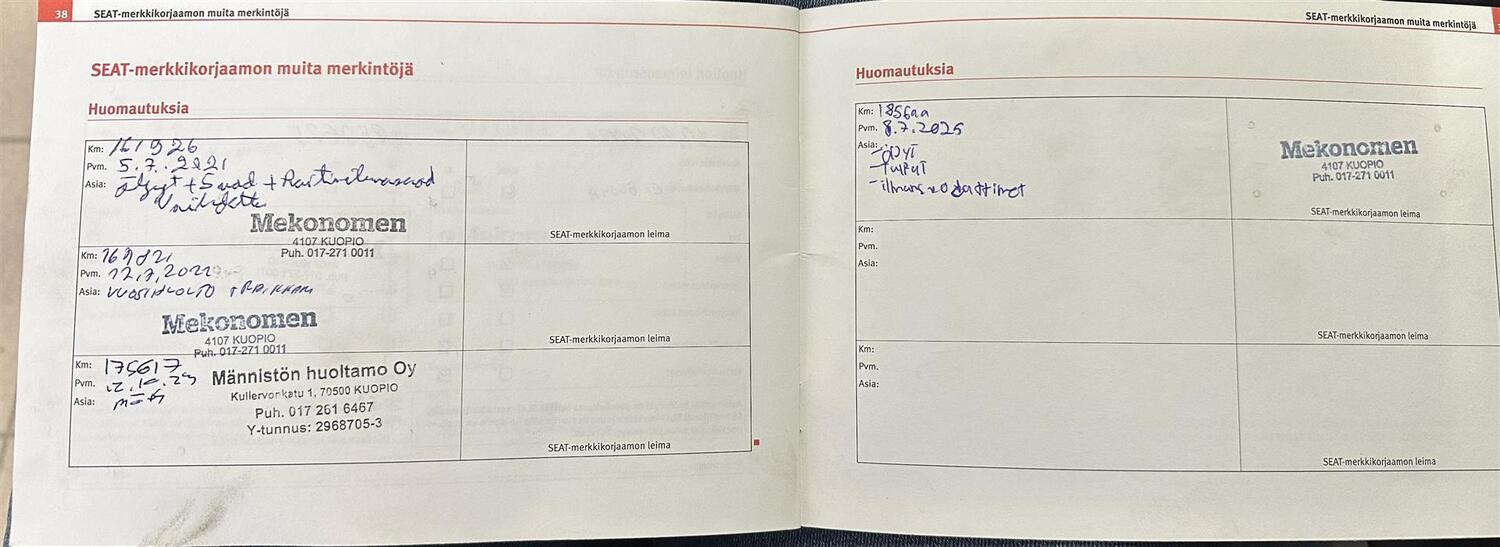 38
SEAT-merkkikorjaamon muita merkintöjä
SEAT-merkkikorjaamon muita merkintöjä
Huomautuksia
Km: 161926
Pvm. 5.7.2021
Asia: Öljyt + Suod +
Mekonomen
4107 KUOPIO
Puh. 017-271 0011
SEAT-merkkikorjaamon leima
Km: 169821
Pvm. 12.7.2022
Asia: VUOSIHUOLTO
Mekonomen
4107 KUOPIO
Puh. 017-271 0011
SEAT-merkkikorjaamon leima
Km: 175617
Pvm. 12.10.23
Asia:
Männistön huoltamo Oy
Kullervonkatu 1, 70500 KUOPIO
Puh. 017 261 6467
Y-tunnus: 2968705-3
SEAT-merkkikorjaamon leima
SEAT-merkkikorjaamon muita merkintöjä
Huomautuksia
Km:
Pvm. 8.7.2025
Asia:
-öljyt
-tulpat
Mekonomen
4107 KUOPIO
Puh. 017-271 0011
SEAT-merkkikorjaamon leima
Km:
Pvm.
Asia:
SEAT-merkkikorjaamon leima
Km:
Pvm.
Asia:
SEAT-merkkikorjaamon leima